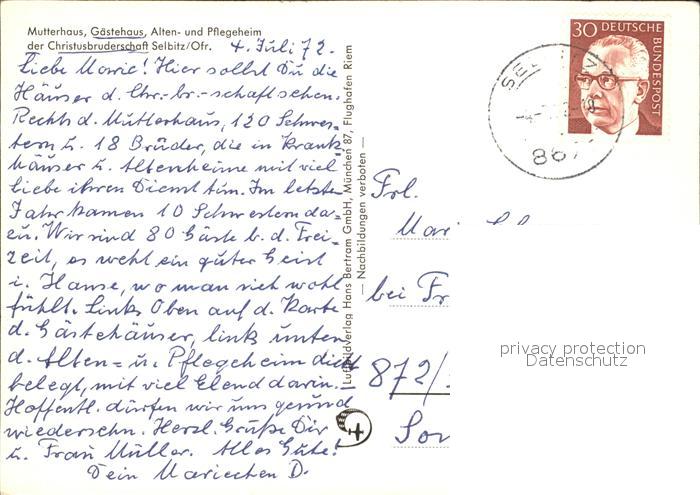 Mutterhaus, Gästehaus, Alten- und Pflegeheim
der Christusbruderschaft Selbitz/Ofr.
4. Juli 72.
Liebe Marie! Hier sollst Du die
Häuser d. Chr.-br.-schaft sehen.
Rechts d. Mutterhaus, 120 Schwes-
tern u. 18 Brüder, die in Krank-
häuser u. Altenheime mit viel
Liebe ihren Dienst tun. Im letzten
Jahr kamen 10 Schwestern da-
zu. Wir sind 80 Gäste b. d. Frei-
zeit, es weht ein guter Geist
i. Hause, wo man sich wohl
fühlt. Links Oben auf d. Karte
d. Gästehäuser, links unten
d. Alten- u. Pflegeheim dicht
belegt, mit viel Elend darin.
Hoffentl. dürfen wir uns gesund
wiedersehn. Herzl. Grüße Dir
u. Frau Müller. Alles Gute!
Dein Mariechen D.
Luftbildverlag Hans Bertram GmbH, München 87, Flughafen Riem
— Nachbildungen verboten —
30 DEUTSCHE
BUNDESPOST
867
Frl.
Mari
bei Fr
872/
privacy protection
Datenschutz